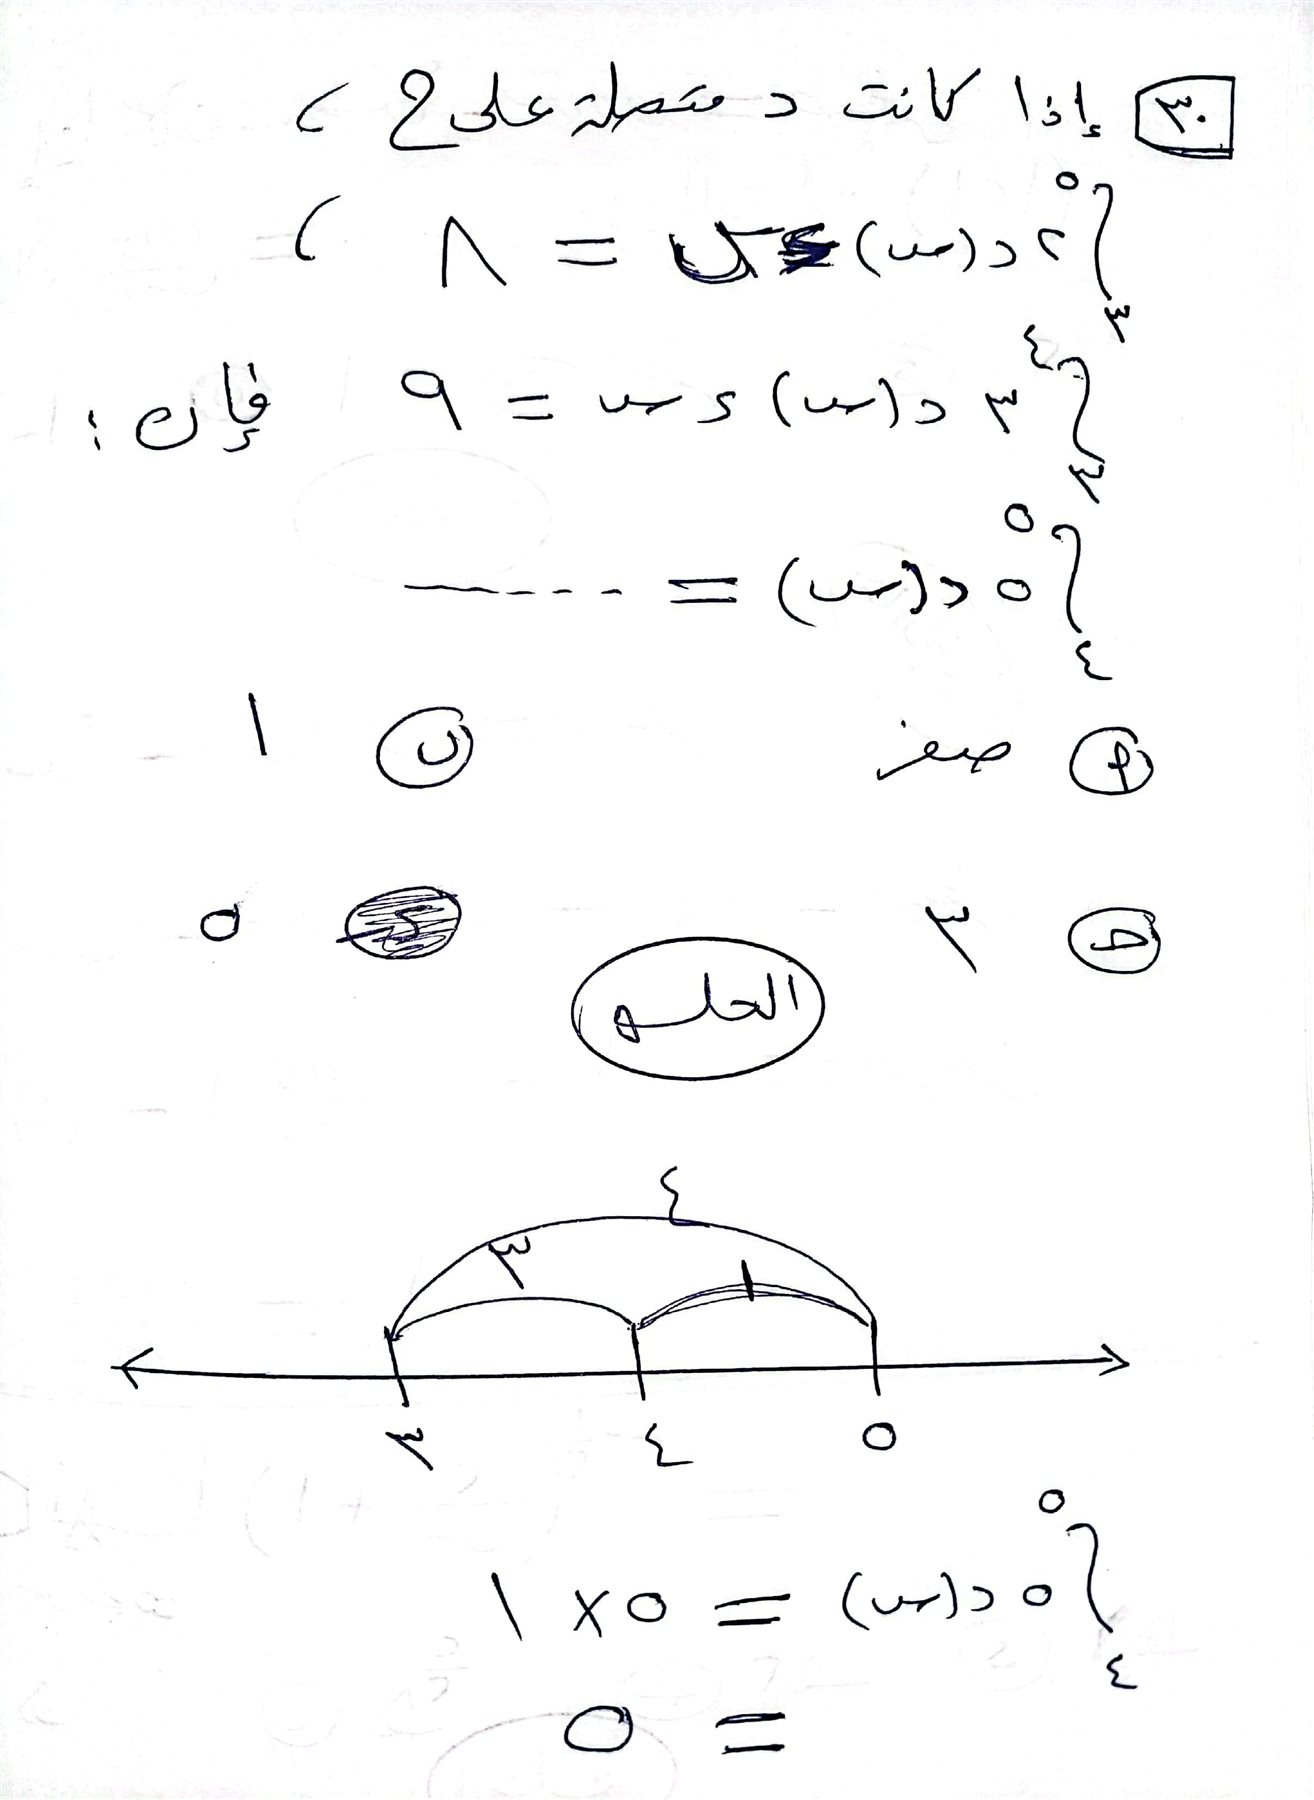 ٣٠ إذا كانت د متصلة على ح ،
∫٣^٥ ٢ د(س) ء س = ٨ ،
∫٣^٤ ٣ د(س) ء س = ٩ فإن :
∫٤^٥ ٥ د(س) = ------
أ صفر ب ١
ج ٣ د ٥
الحل
٤
٣ ١
٣ ٤ ٥
∫٤^٥ ٥ د(س) = ٥ × ١
= ٥